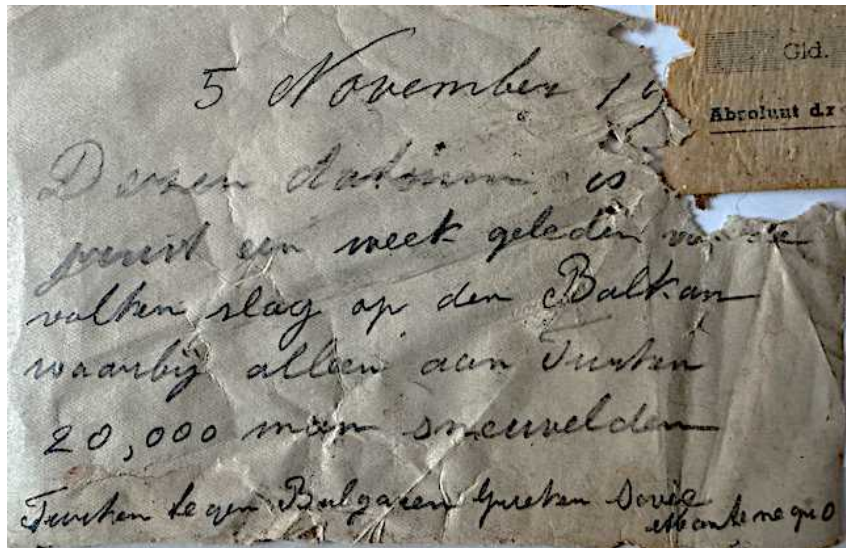 5 November 19
Gld.
Absoluut d.r
Dezen datum is
juist een week geleden van de
volken slag op den Balkan
waarbij alleen aan Turken
20,000 man sneuvelden
Turken tegen Bulgaren Grieken Servië
Montenegro